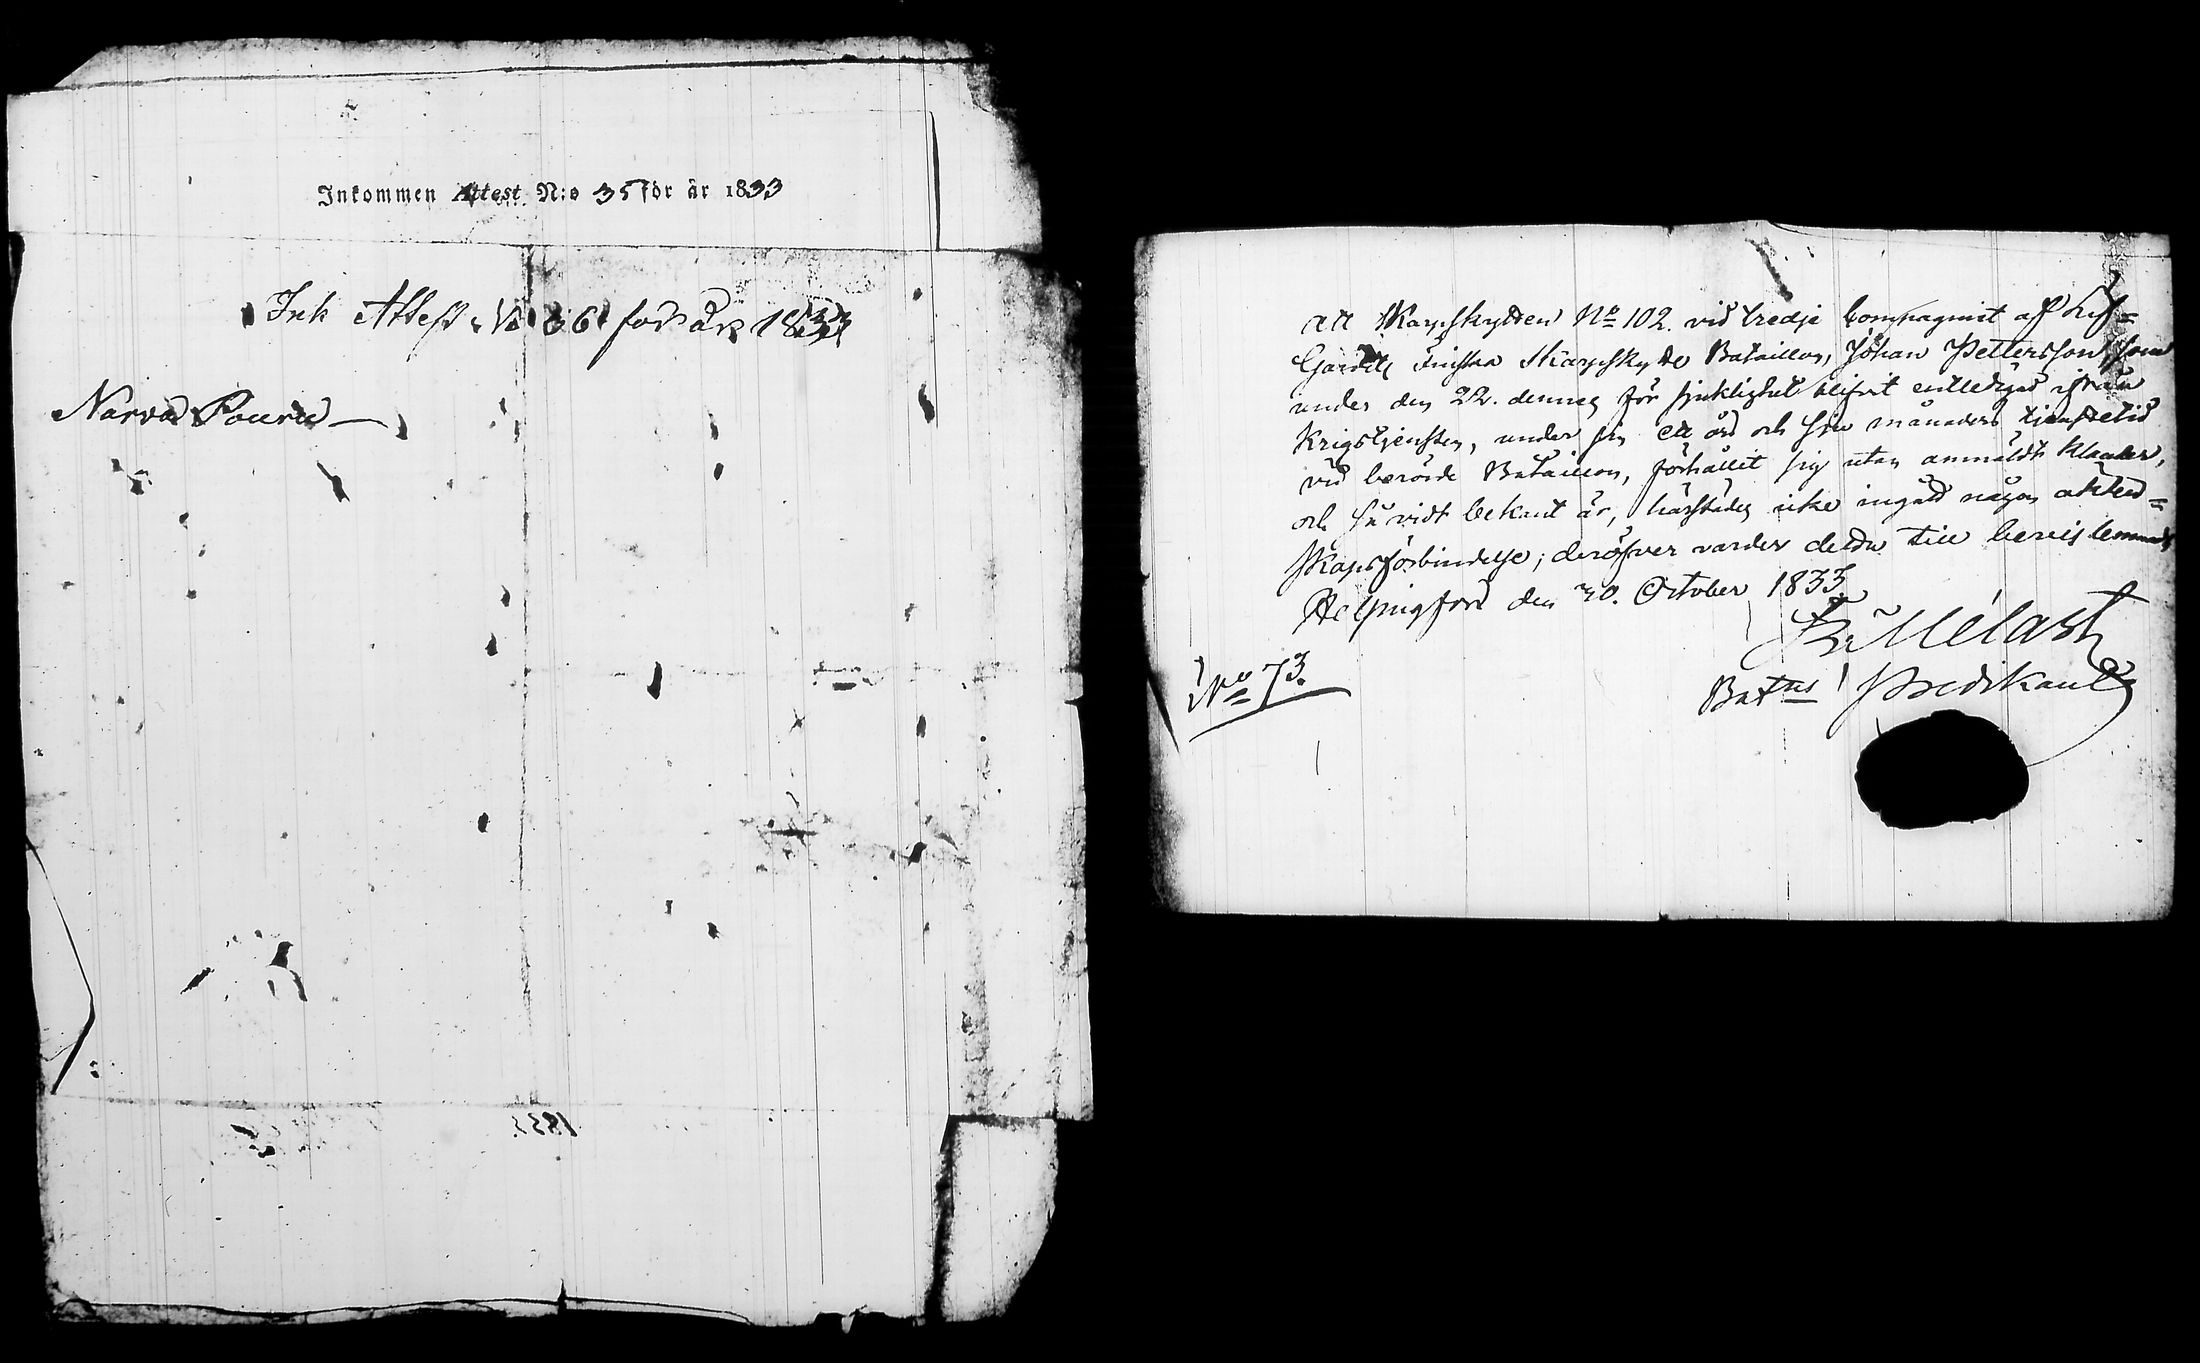 Inkommen Attest N:o 35 för år 1833
Ink Attest No 36 för år 1833
Narva
att Skarpskytten No 102. vid tredje Compagniet af Lif=
Gardets Finska Skarpskytte Bataillon, Johan Pettersson, som
under den 22. dennes för sjuklighet blifvit entledigad ifrån
Krigstjensten, under sin ett års och sju månaders tjenstetid
vid berörde Bataillon, förhållit sig utan anmäldt klander,
och så vidt bekant är, härstädes icke ingått någon äkten=
skapsförbindelse; deröfver varder detta till bevis lemnadt
Helsingfors den 30. October 1833.
Melart
Batns Predikant
No 73.
1833.